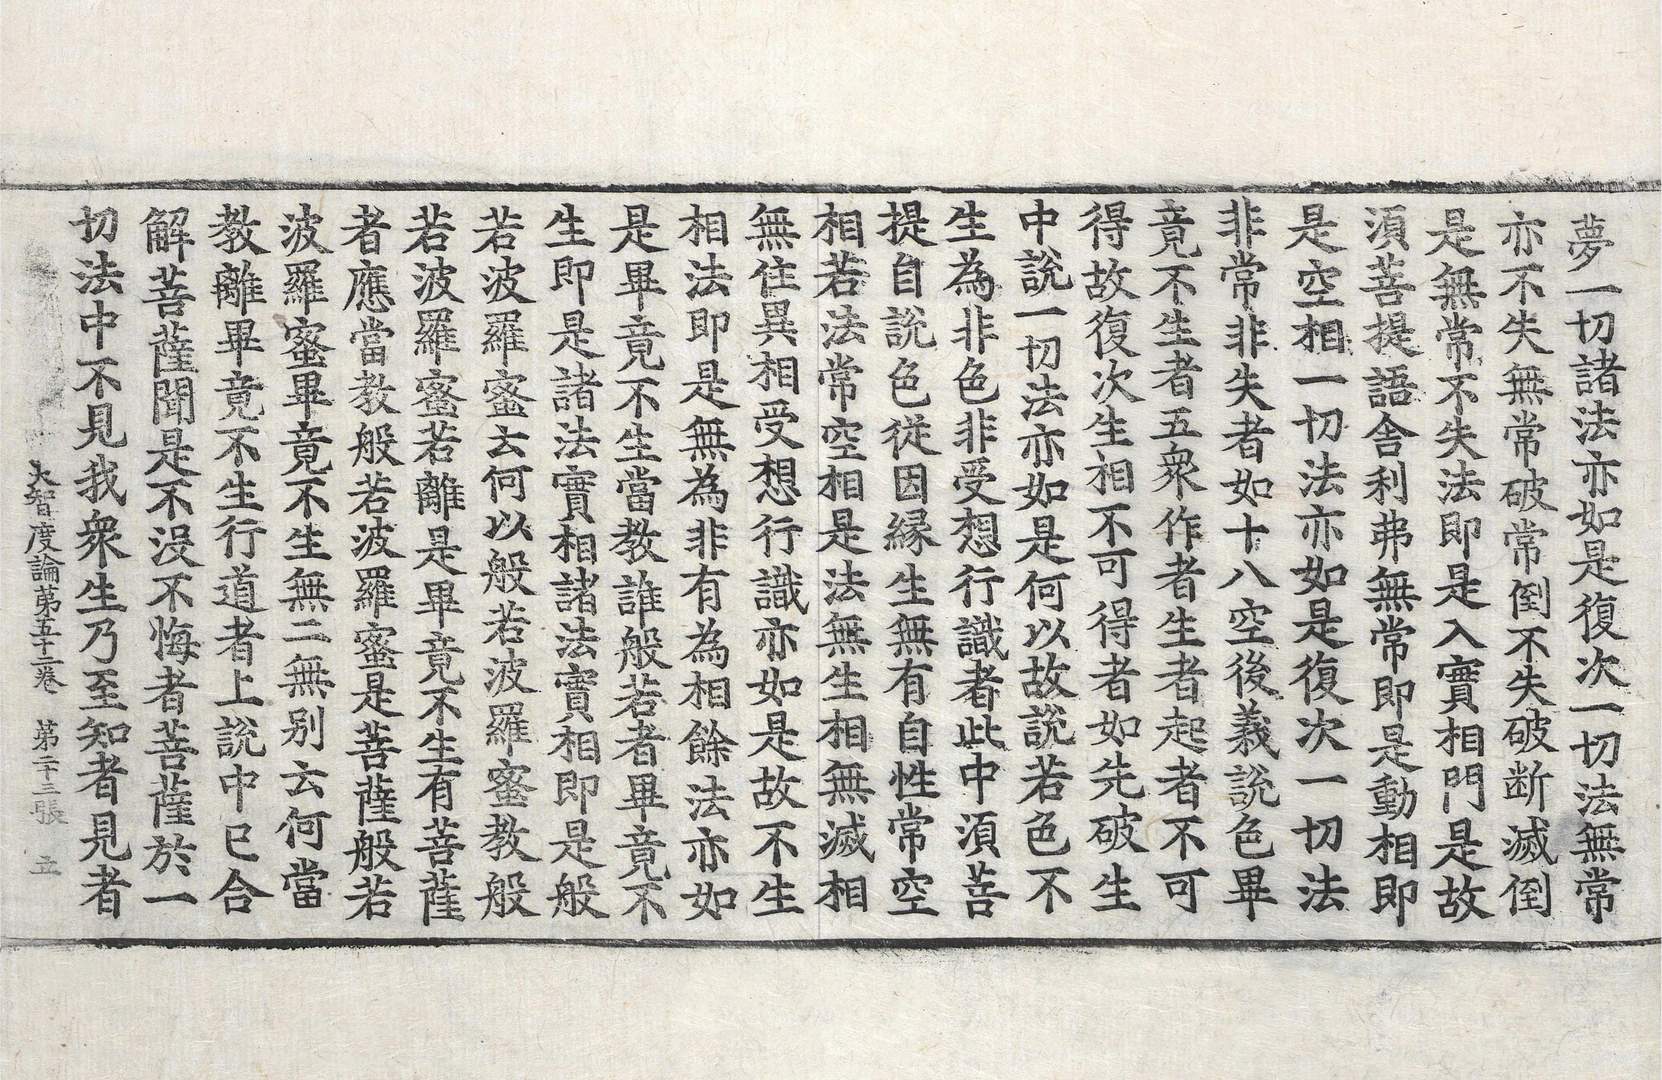 夢一切諸法亦如是復次一切法無常
亦不失無常破常倒不失破断滅倒
是無常不失法即是入實相門是故
須菩提語舎利弗無常即是動相即
是空相一切法亦如是復次一切法
非常非失者如十八空後義說色畢
竟不生者五衆作者生者起者不可
得故復次生相不可得者如先破生
中說一切法亦如是何以故說若色不
生為非色非受想行識者此中須菩
提自說色從因縁生無有自性常空
相若法常空相是法無生相無滅相
無住異相受想行識亦如是故不生
相法即是無為非有為相餘法亦如
是畢竟不生當教誰般若者畢竟不
生即是諸法實相諸法實相即是般
若波羅蜜云何以般若波羅蜜教般
若波羅蜜若離是畢竟不生有菩薩
者應當教般若波羅蜜是菩薩般若
波羅蜜畢竟不生無二無別云何當
教離畢竟不生行道者上說中已合
解菩薩聞是不没不悔者菩薩於一
切法中不見我衆生乃至知者見者
大智度論第五十二卷 第二十三張 五